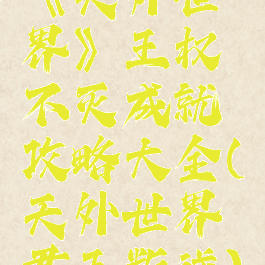 《天外世
界》王权
不灭成就
攻略大全(
天外世界